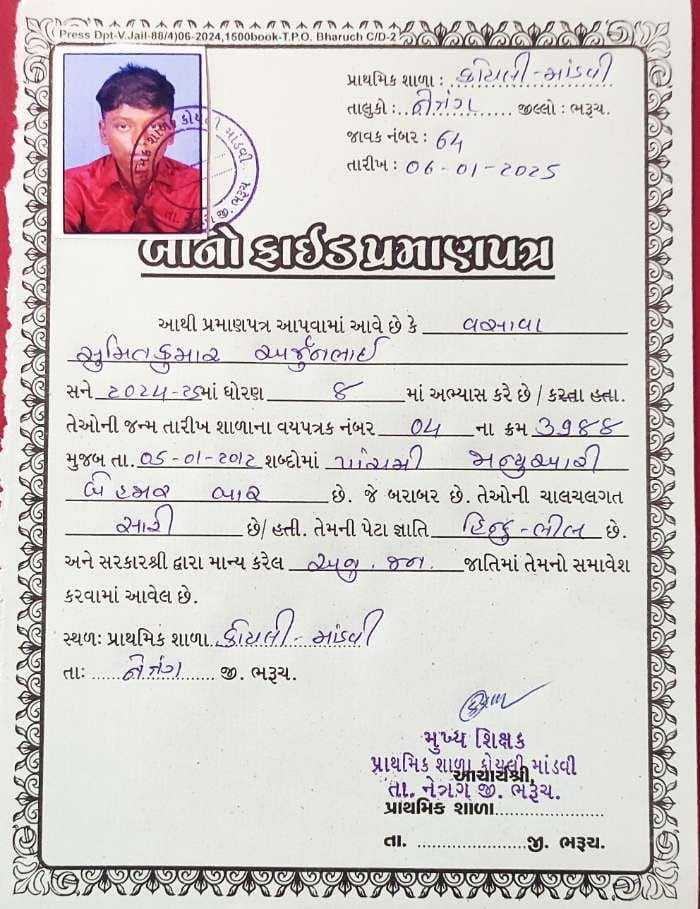 Press Dpt-V.Jail-88/4)06-2024,1500book-T.P.O. Bharuch C/D-2
પ્રાથમિક શાળા : કોયલી-માંડવી
તાલુકો : નેત્રંગ જીલ્લો : ભરૂચ.
જાવક નંબર : 64
તારીખ : 06-01-2025
પ્રાથમિક શાળા કોયલી માંડવી. તા. નેત્રંગ જી. ભરૂચ
બોનો ફાઈડ પ્રમાણપત્ર
આથી પ્રમાણપત્ર આપવામાં આવે છે કે વસાવા
સુમિતકુમાર અર્જુનભાઈ
સને ૨૦૨૪-૨૫માં ધોરણ ૪ માં અભ્યાસ કરે છે / કરતા હતા.
તેઓની જન્મ તારીખ શાળાના વયપત્રક નંબર 04 ના ક્રમ ૩૧૪૪
મુજબ તા. 05-01-2012 શબ્દોમાં પાંચમી જાન્યુઆરી
બે હજાર બાર છે. જે બરાબર છે. તેઓની ચાલચલગત
સારી છે/ હતી. તેમની પેટા જ્ઞાતિ હિન્દુ-ભીલ છે.
અને સરકારશ્રી દ્વારા માન્ય કરેલ અનુ. જન. જાતિમાં તેમનો સમાવેશ
કરવામાં આવેલ છે.
સ્થળઃ પ્રાથમિક શાળા કોયલી-માંડવી
તાઃ નેત્રંગ જી. ભરૂચ.
મુખ્ય શિક્ષક
પ્રાથમિક શાળા કોયલી માંડવી
આચાર્યશ્રી,
તા. નેત્રંગ જી. ભરૂચ.
પ્રાથમિક શાળા
તા. જી. ભરૂચ.